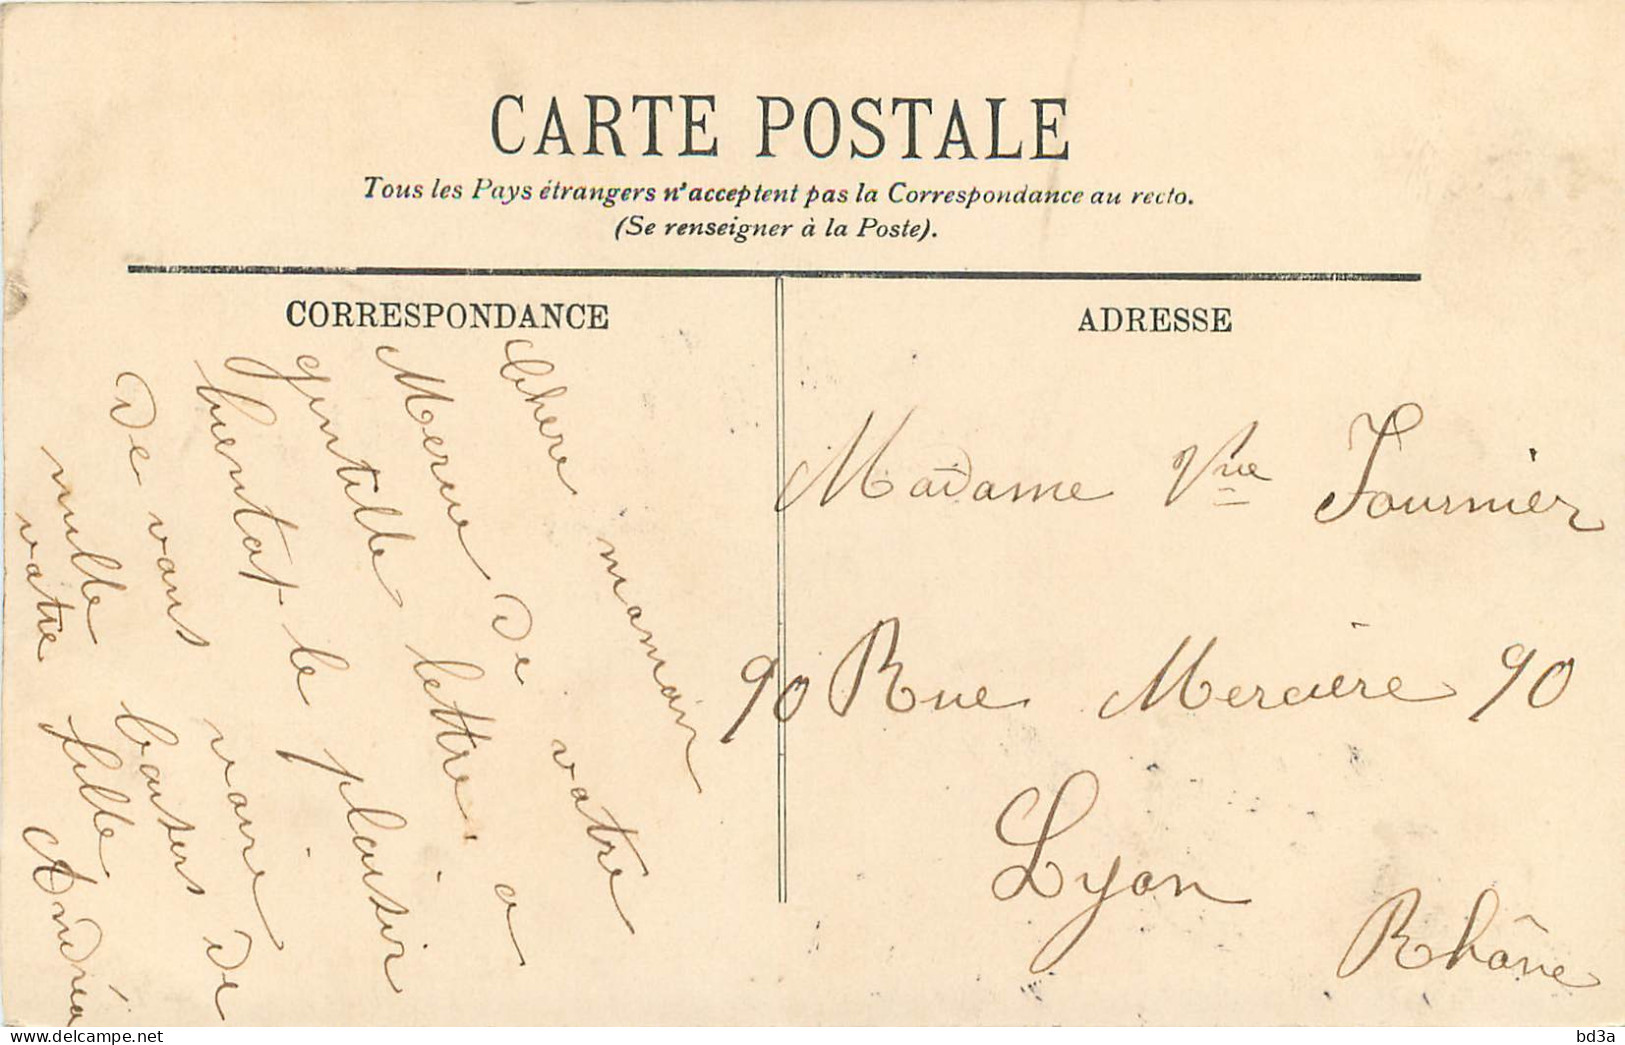 CARTE POSTALE
Tous les Pays étrangers n'acceptent pas la Correspondance au recto.
(Se renseigner à la Poste).
CORRESPONDANCE
Chere maman
Merci de votre
gentille lettre. a
bientot le plaisir
de vous voir.
mille baisers de
votre fille Andréa
ADRESSE
Madame Vve Fournier
90 Rue Mercière 90
Lyon
Rhône
bd3a